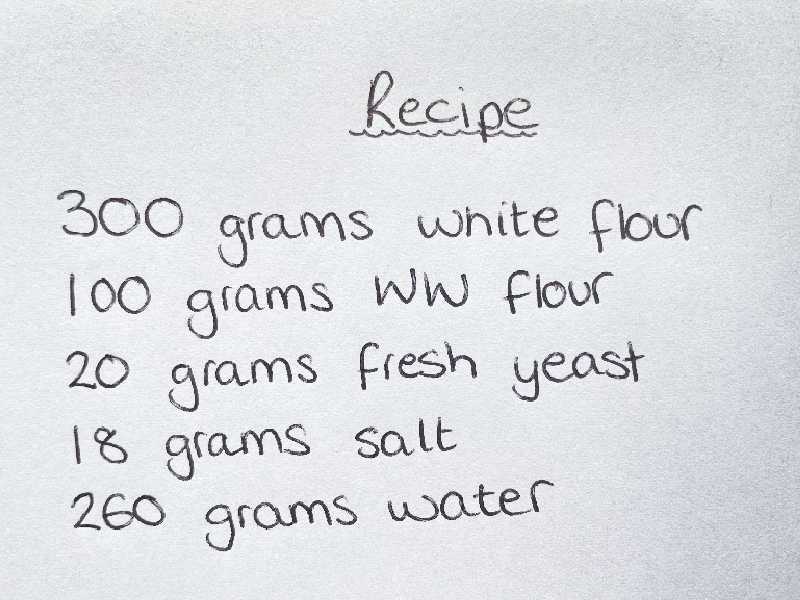 Recipe
300 grams white flour
100 grams WW flour
20 grams fresh yeast
18 grams salt
260 grams water